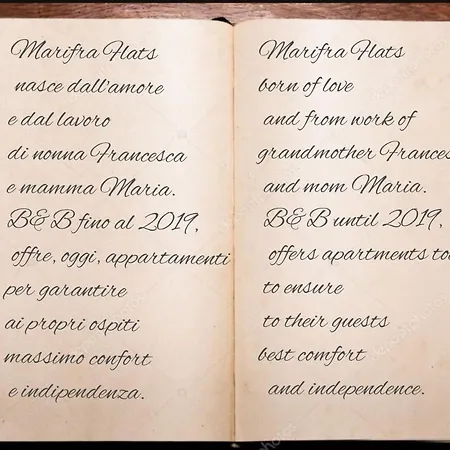 Marifra Flats
nasce dall'amore
e dal lavoro
di nonna Francesca
e mamma Maria.
B&B fino al 2019,
offre, oggi, appartamenti
per garantire
ai propri ospiti
massimo confort
e indipendenza.
Marifra Flats
born of love
and from work of
grandmother Frances
and mom Maria.
B&B until 2019,
offers apartments to
to ensure
to their guests
best comfort
and independence.